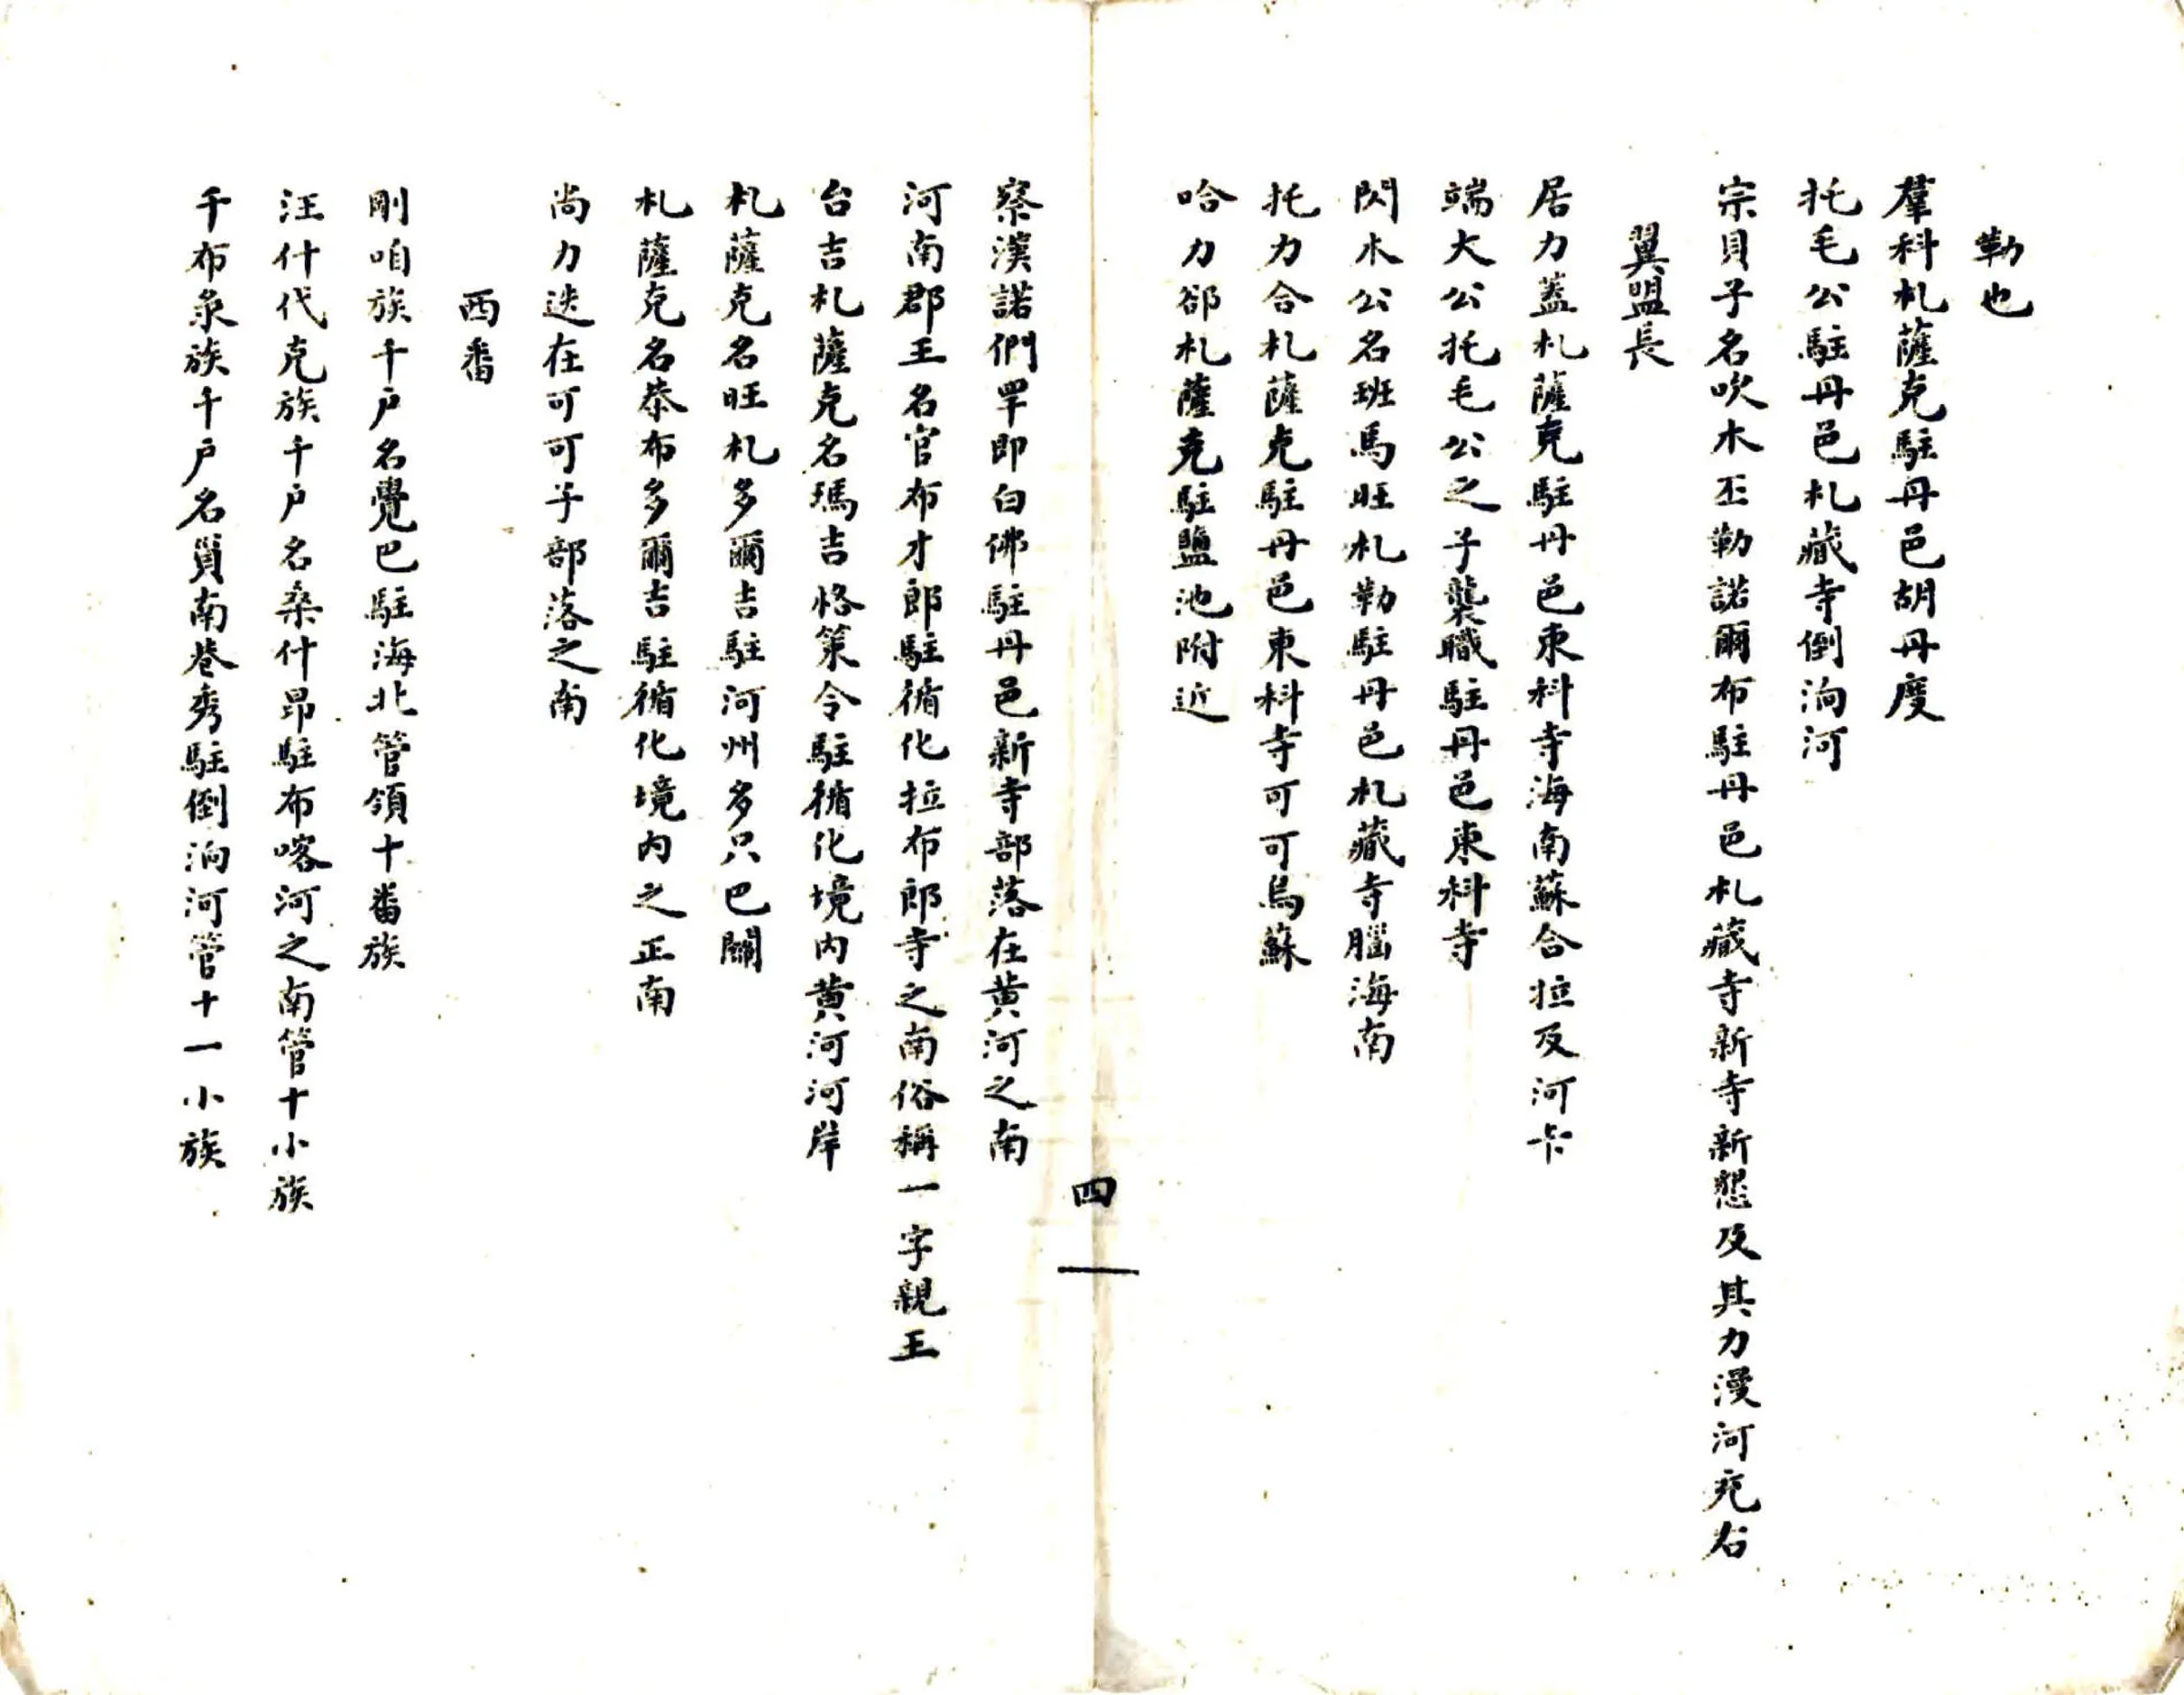 勒也
羣科札薩克駐丹邑胡丹度
托毛公駐丹邑札藏寺倒淌河
宗貝子名吹木丕勒諾爾布駐丹邑札藏寺新寺新懇及其力漫河充右
翼盟長
居力蓋札薩克駐丹邑東科寺海南蘇合拉及河卡
端大公托毛公之子襲職駐丹邑東科寺
閃木公名班馬旺札勒駐丹邑札藏寺腦海南
托力合札薩克駐丹邑東科寺可可烏蘇
哈力郤札薩克駐鹽池附近
四
察漢諾們罕即白佛駐丹邑新寺部落在黃河之南
河南郡王名官布才郎駐循化拉布郎寺之南俗稱一字親王
台吉札薩克名瑪吉格策令駐循化境內黃河河岸
札薩克名旺札多爾吉駐河州多只巴關
札薩克名恭布多爾吉駐循化境內之正南
尚力迭在可可子部落之南
西番
剛咱族千户名覺巴駐海北管領十番族
汪什代克族千户名桑什昂駐布喀河之南管十小族
千布彔族千户名貟南巷秀駐倒淌河管十一小族